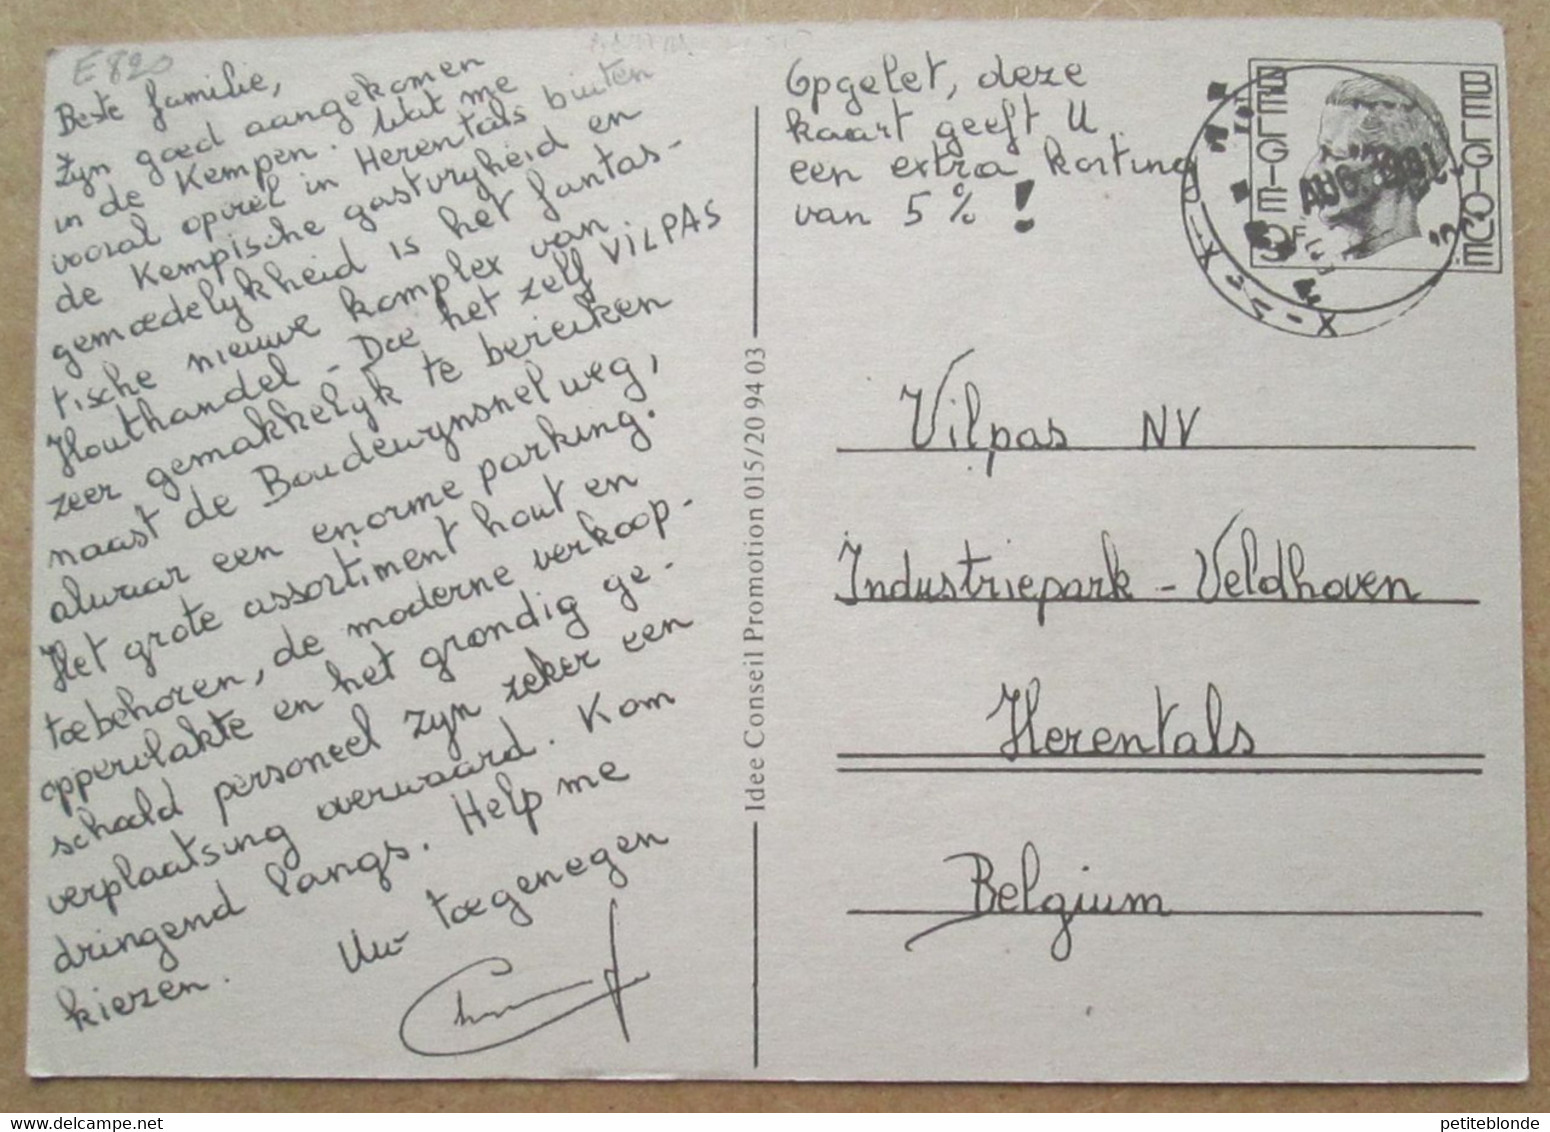 E 820
Beste familie,
Zijn goed aangekomen
in de Kempen. Wat me
vooral opviel in Herentals buiten
de Kempische gastvrijheid en
gemoedelijkheid is het fantas-
tische nieuwe komplex van
Houthandel - Doe het zelf VILPAS
zeer gemakkelijk te bereiken
naast de Boudewijnsnelweg,
alwaar een enorme parking.
Het grote assortiment hout en
toebehoren, de moderne verkoop-
oppervlakte en het grondig ge-
schoold personeel zijn zeker een
verplaatsing overwaard. Kom
dringend langs. Help me
kiezen.
Uw toegenegen
Idee Conseil Promotion 015/20 94 03
Opgelet, deze
kaart geeft U
een extra korting
van 5 % !
BELGIE
BELGIQUE
AUG. 1981
Vilpas NV
Industriepark - Veldhoven
Herentals
Belgium
delcampe.net
petiteblonde